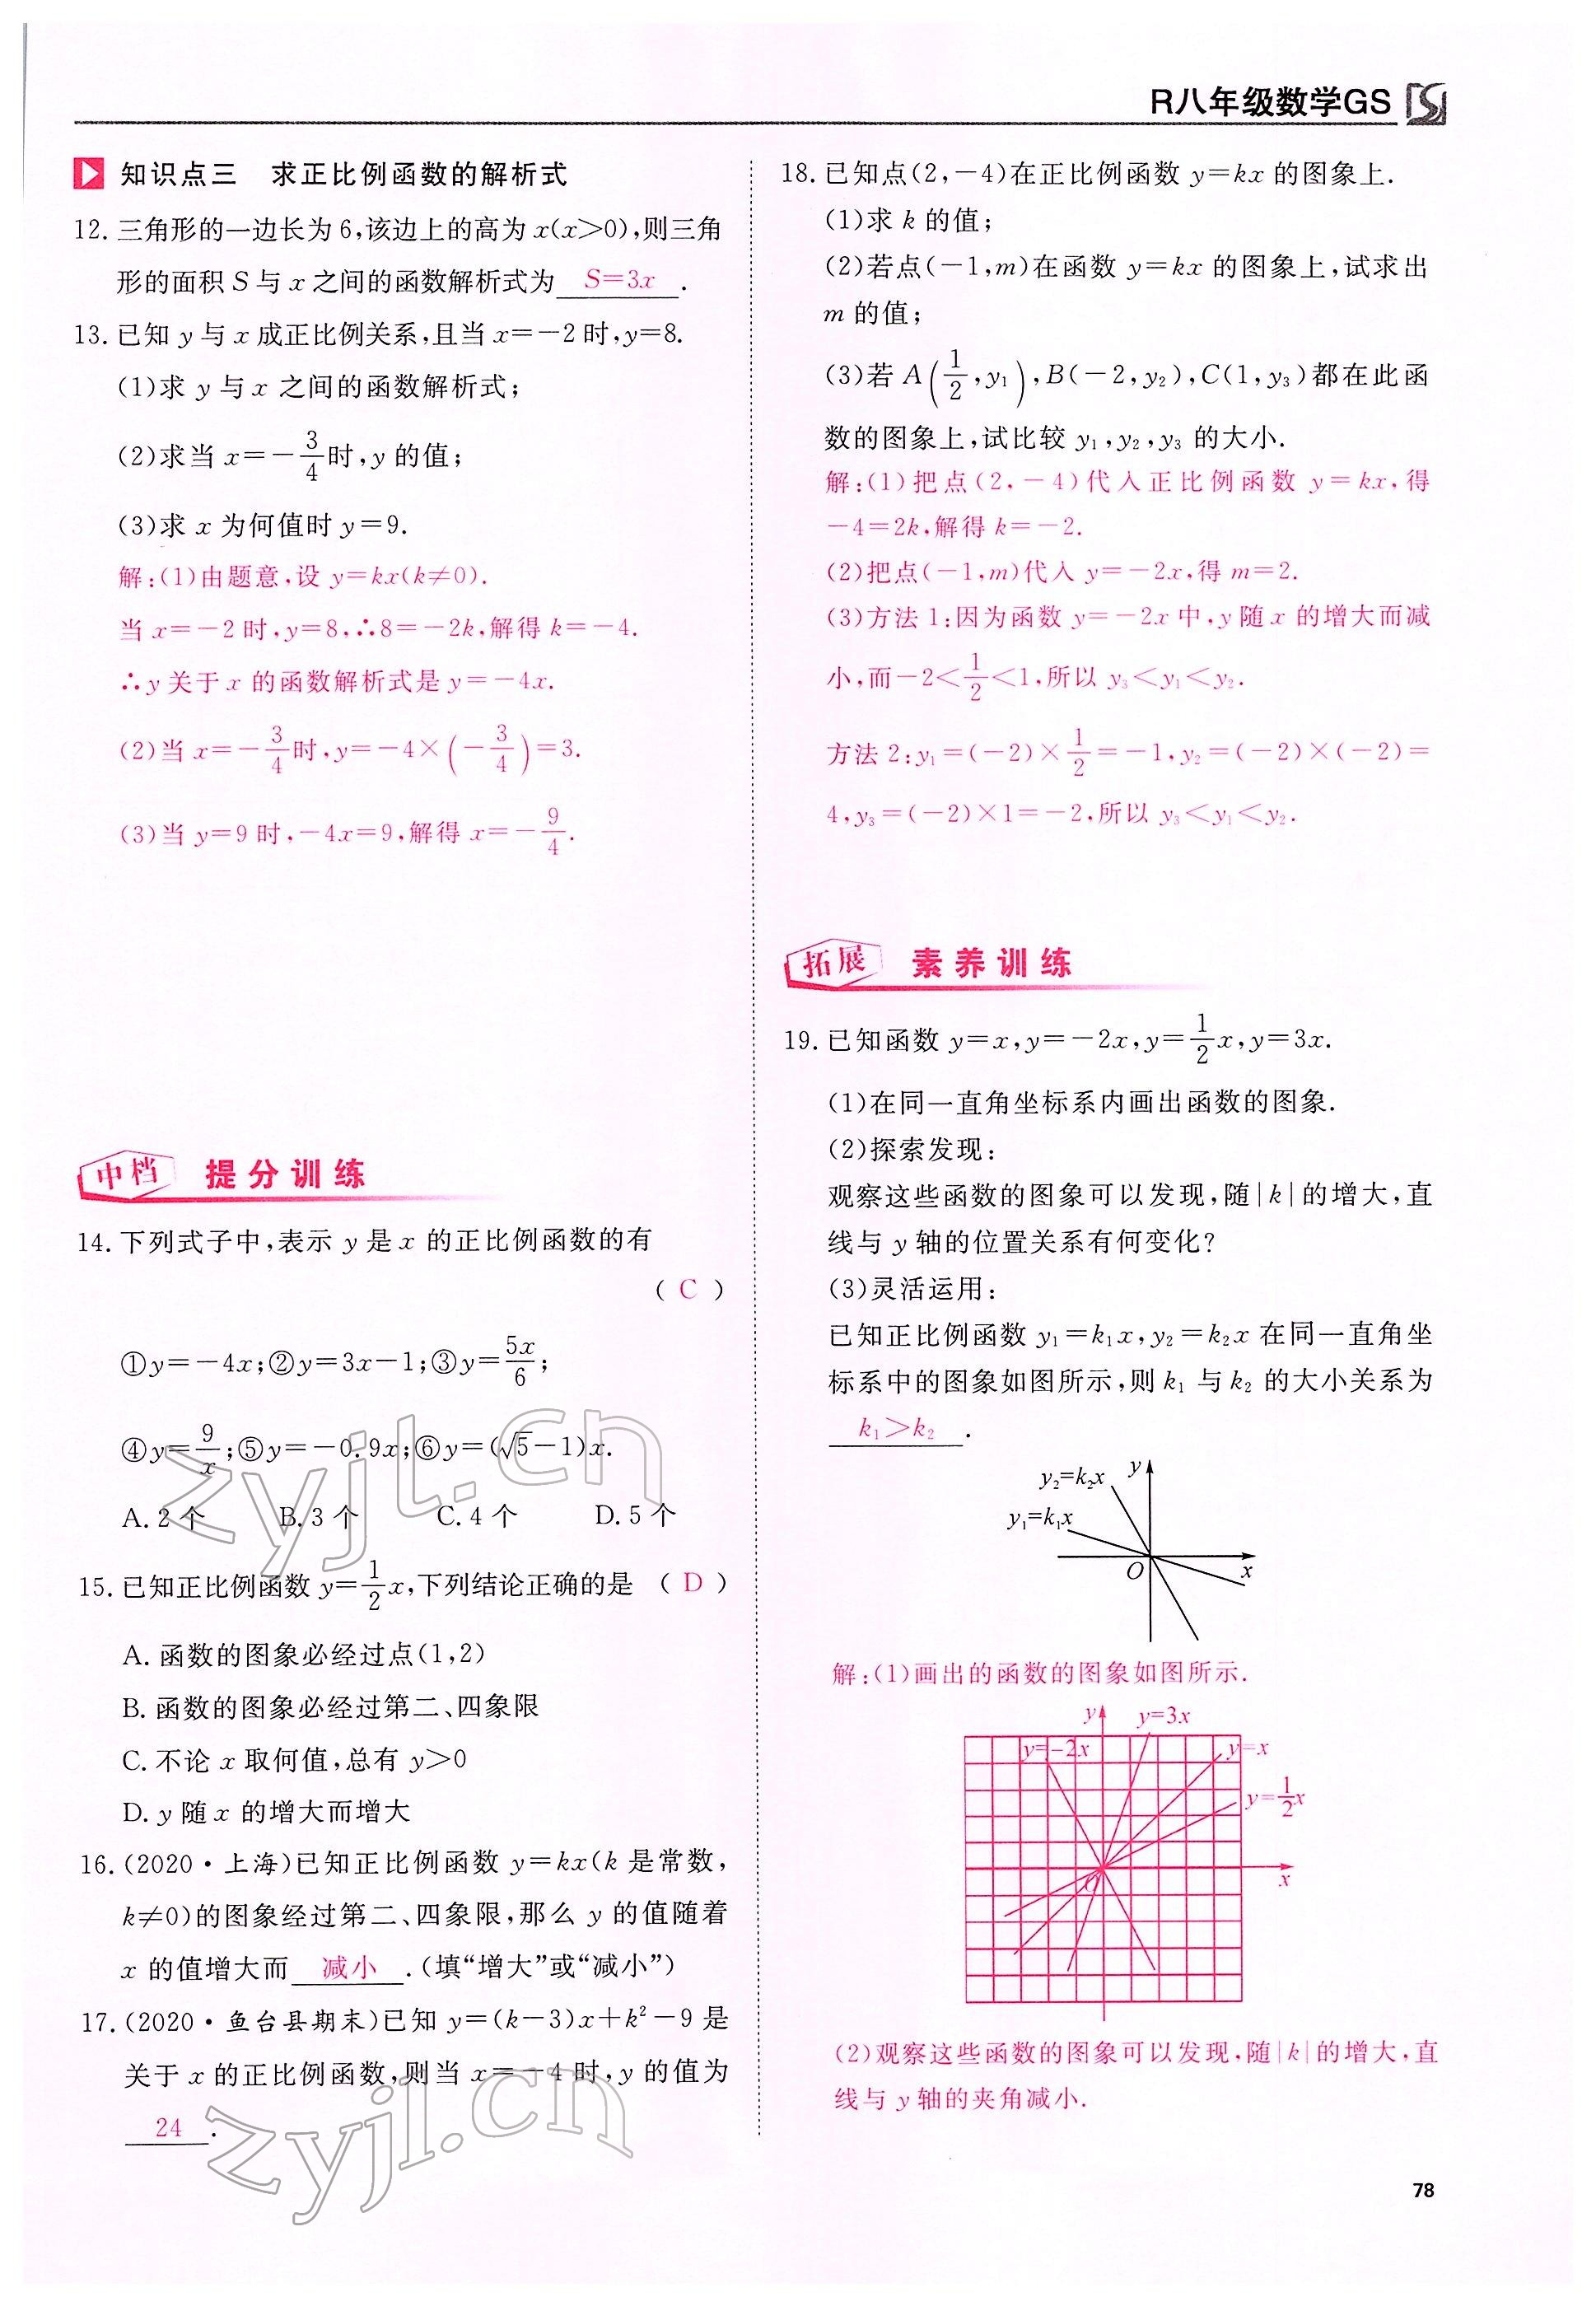 R八年级数学GS
知识点三 求正比例函数的解析式
12. 三角形的一边长为 6,该边上的高为 x(x>0),则三角
形的面积 S 与 x 之间的函数解析式为 S=3x .
13. 已知 y 与 x 成正比例关系,且当 x=-2 时,y=8.
(1)求 y 与 x 之间的函数解析式;
(2)求当 x=-3/4时,y 的值;
(3)求 x 为何值时 y=9.
解:(1)由题意,设 y=kx(k≠0).
当 x=-2 时,y=8,∴8=-2k,解得 k=-4.
∴y 关于 x 的函数解析式是 y=-4x.
(2)当 x=-3/4时,y=-4×(-3/4)=3.
(3)当 y=9 时,-4x=9,解得 x=-9/4.
中档 提分训练
14. 下列式子中,表示 y 是 x 的正比例函数的有
( C )
①y=-4x;②y=3x-1;③y=5x/6;
④y=9/x;⑤y=-0.9x;⑥y=(√5-1)x.
A. 2 个 B. 3 个 C. 4 个 D. 5 个
15. 已知正比例函数 y=1/2x,下列结论正确的是 ( D )
A. 函数的图象必经过点(1,2)
B. 函数的图象必经过第二、四象限
C. 不论 x 取何值,总有 y>0
D. y 随 x 的增大而增大
16. (2020·上海)已知正比例函数 y=kx(k 是常数,
k≠0)的图象经过第二、四象限,那么 y 的值随着
x 的值增大而 减小 .(填“增大”或“减小”)
17. (2020·鱼台县期末)已知 y=(k-3)x+k²-9 是
关于 x 的正比例函数,则当 x=-4 时,y 的值为
24 .
18. 已知点(2,-4)在正比例函数 y=kx 的图象上.
(1)求 k 的值;
(2)若点(-1,m)在函数 y=kx 的图象上,试求出
m 的值;
(3)若 A(1/2,y₁),B(-2,y₂),C(1,y₃)都在此函
数的图象上,试比较 y₁,y₂,y₃ 的大小.
解:(1)把点(2,-4)代入正比例函数 y=kx,得
-4=2k,解得 k=-2.
(2)把点(-1,m)代入 y=-2x,得 m=2.
(3)方法 1:因为函数 y=-2x 中,y 随 x 的增大而减
小,而-2<1/2<1,所以 y₃<y₁<y₂.
方法 2:y₁=(-2)×1/2=-1,y₂=(-2)×(-2)=
4,y₃=(-2)×1=-2,所以 y₃<y₁<y₂.
拓展 素养训练
19. 已知函数 y=x,y=-2x,y=1/2x,y=3x.
(1)在同一直角坐标系内画出函数的图象.
(2)探索发现:
观察这些函数的图象可以发现,随|k|的增大,直
线与 y 轴的位置关系有何变化?
(3)灵活运用:
已知正比例函数 y₁=k₁x,y₂=k₂x 在同一直角坐
标系中的图象如图所示,则 k₁ 与 k₂ 的大小关系为
k₁>k₂ .
y₂=k₂x y
y₁=k₁x
O x
解:(1)画出的函数的图象如图所示.
y y=3x
y=-2x y=x
y=1/2x
O x
(2)观察这些函数的图象可以发现,随|k|的增大,直
线与 y 轴的夹角减小.
78
zyjl.cn
zyjl.cn